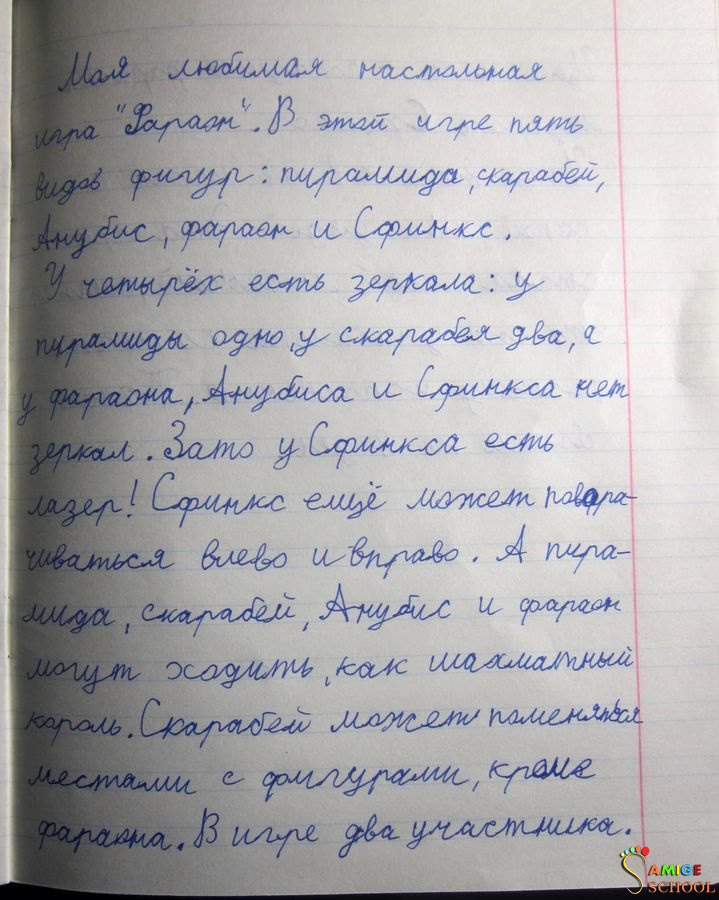 Моя любимая настольная
игра "Фараон". В этой игре пять
видов фигур: пирамида, скарабей,
Анубис, фараон и Сфинкс.
У четырёх есть зеркала: у
пирамиды одно, у скарабея два, а
у фараона, Анубиса и Сфинкса нет
зеркал. Зато у Сфинкса есть
лазер! Сфинкс ещё может повора-
чиваться влево и вправо. А пира-
мида, скарабей, Анубис и фараон
могут ходить, как шахматный
король. Скарабей может поменяться
местами с фигурами, кроме
фараона. В игре два участника.
AMIGE
SCHOOL